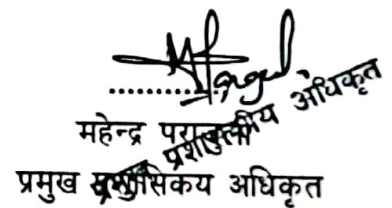 महेन्द्र पराजुली
प्रमुख प्रशासिकय अधिकृत
प्रमुख प्रशासकीय अधिकृत